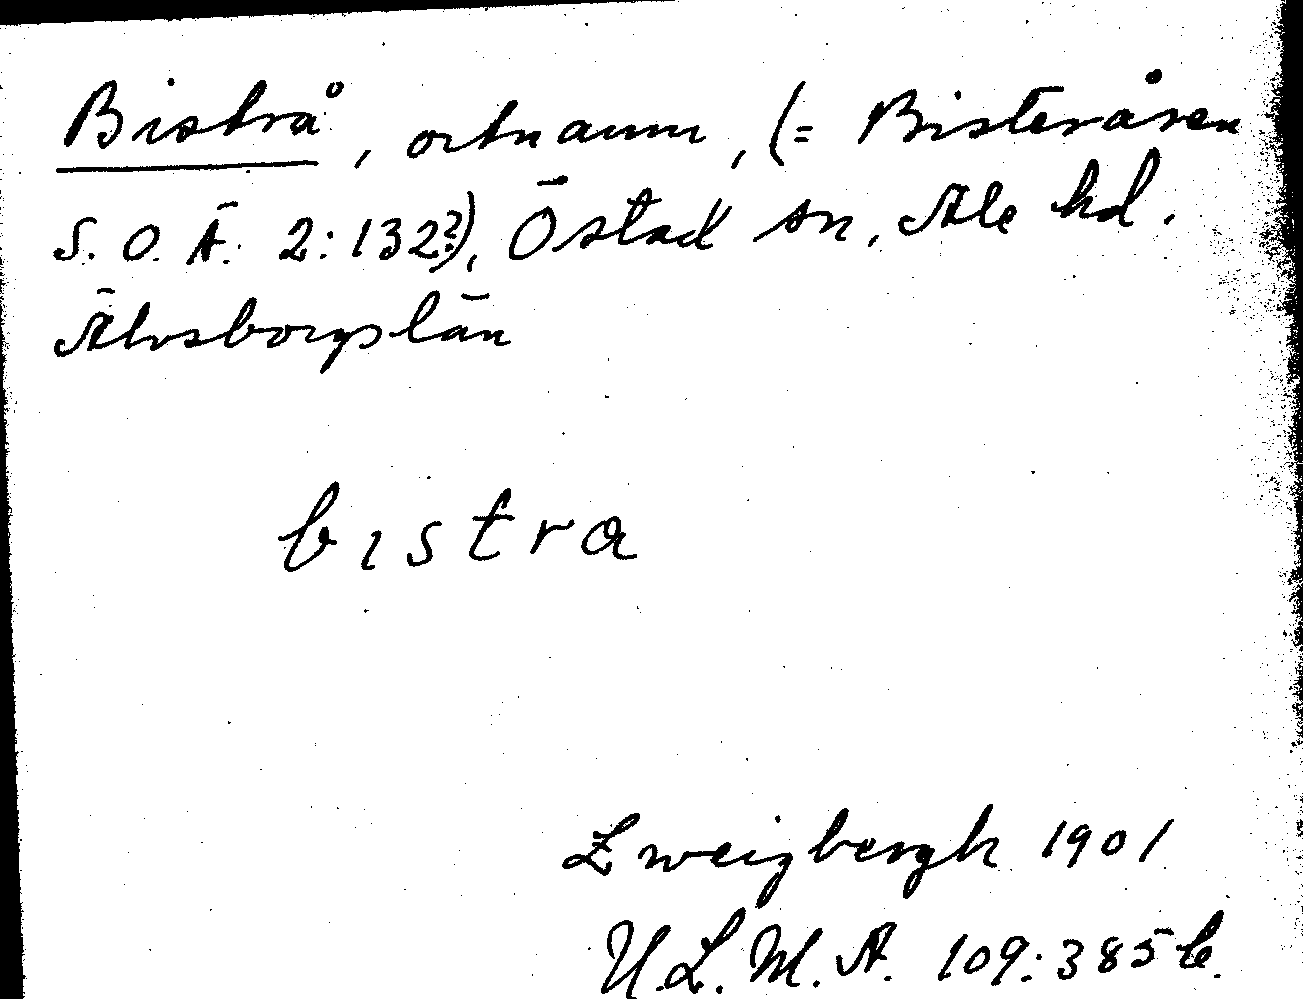 Bistrå, ortnamn, (= Bisteråsen
S. O. Ä. 2:132?), Östad sn, Ale hd.
Älvsborgs län
bıstra
Zweigbergk 1901
U.L.M.A. 109:385 b.